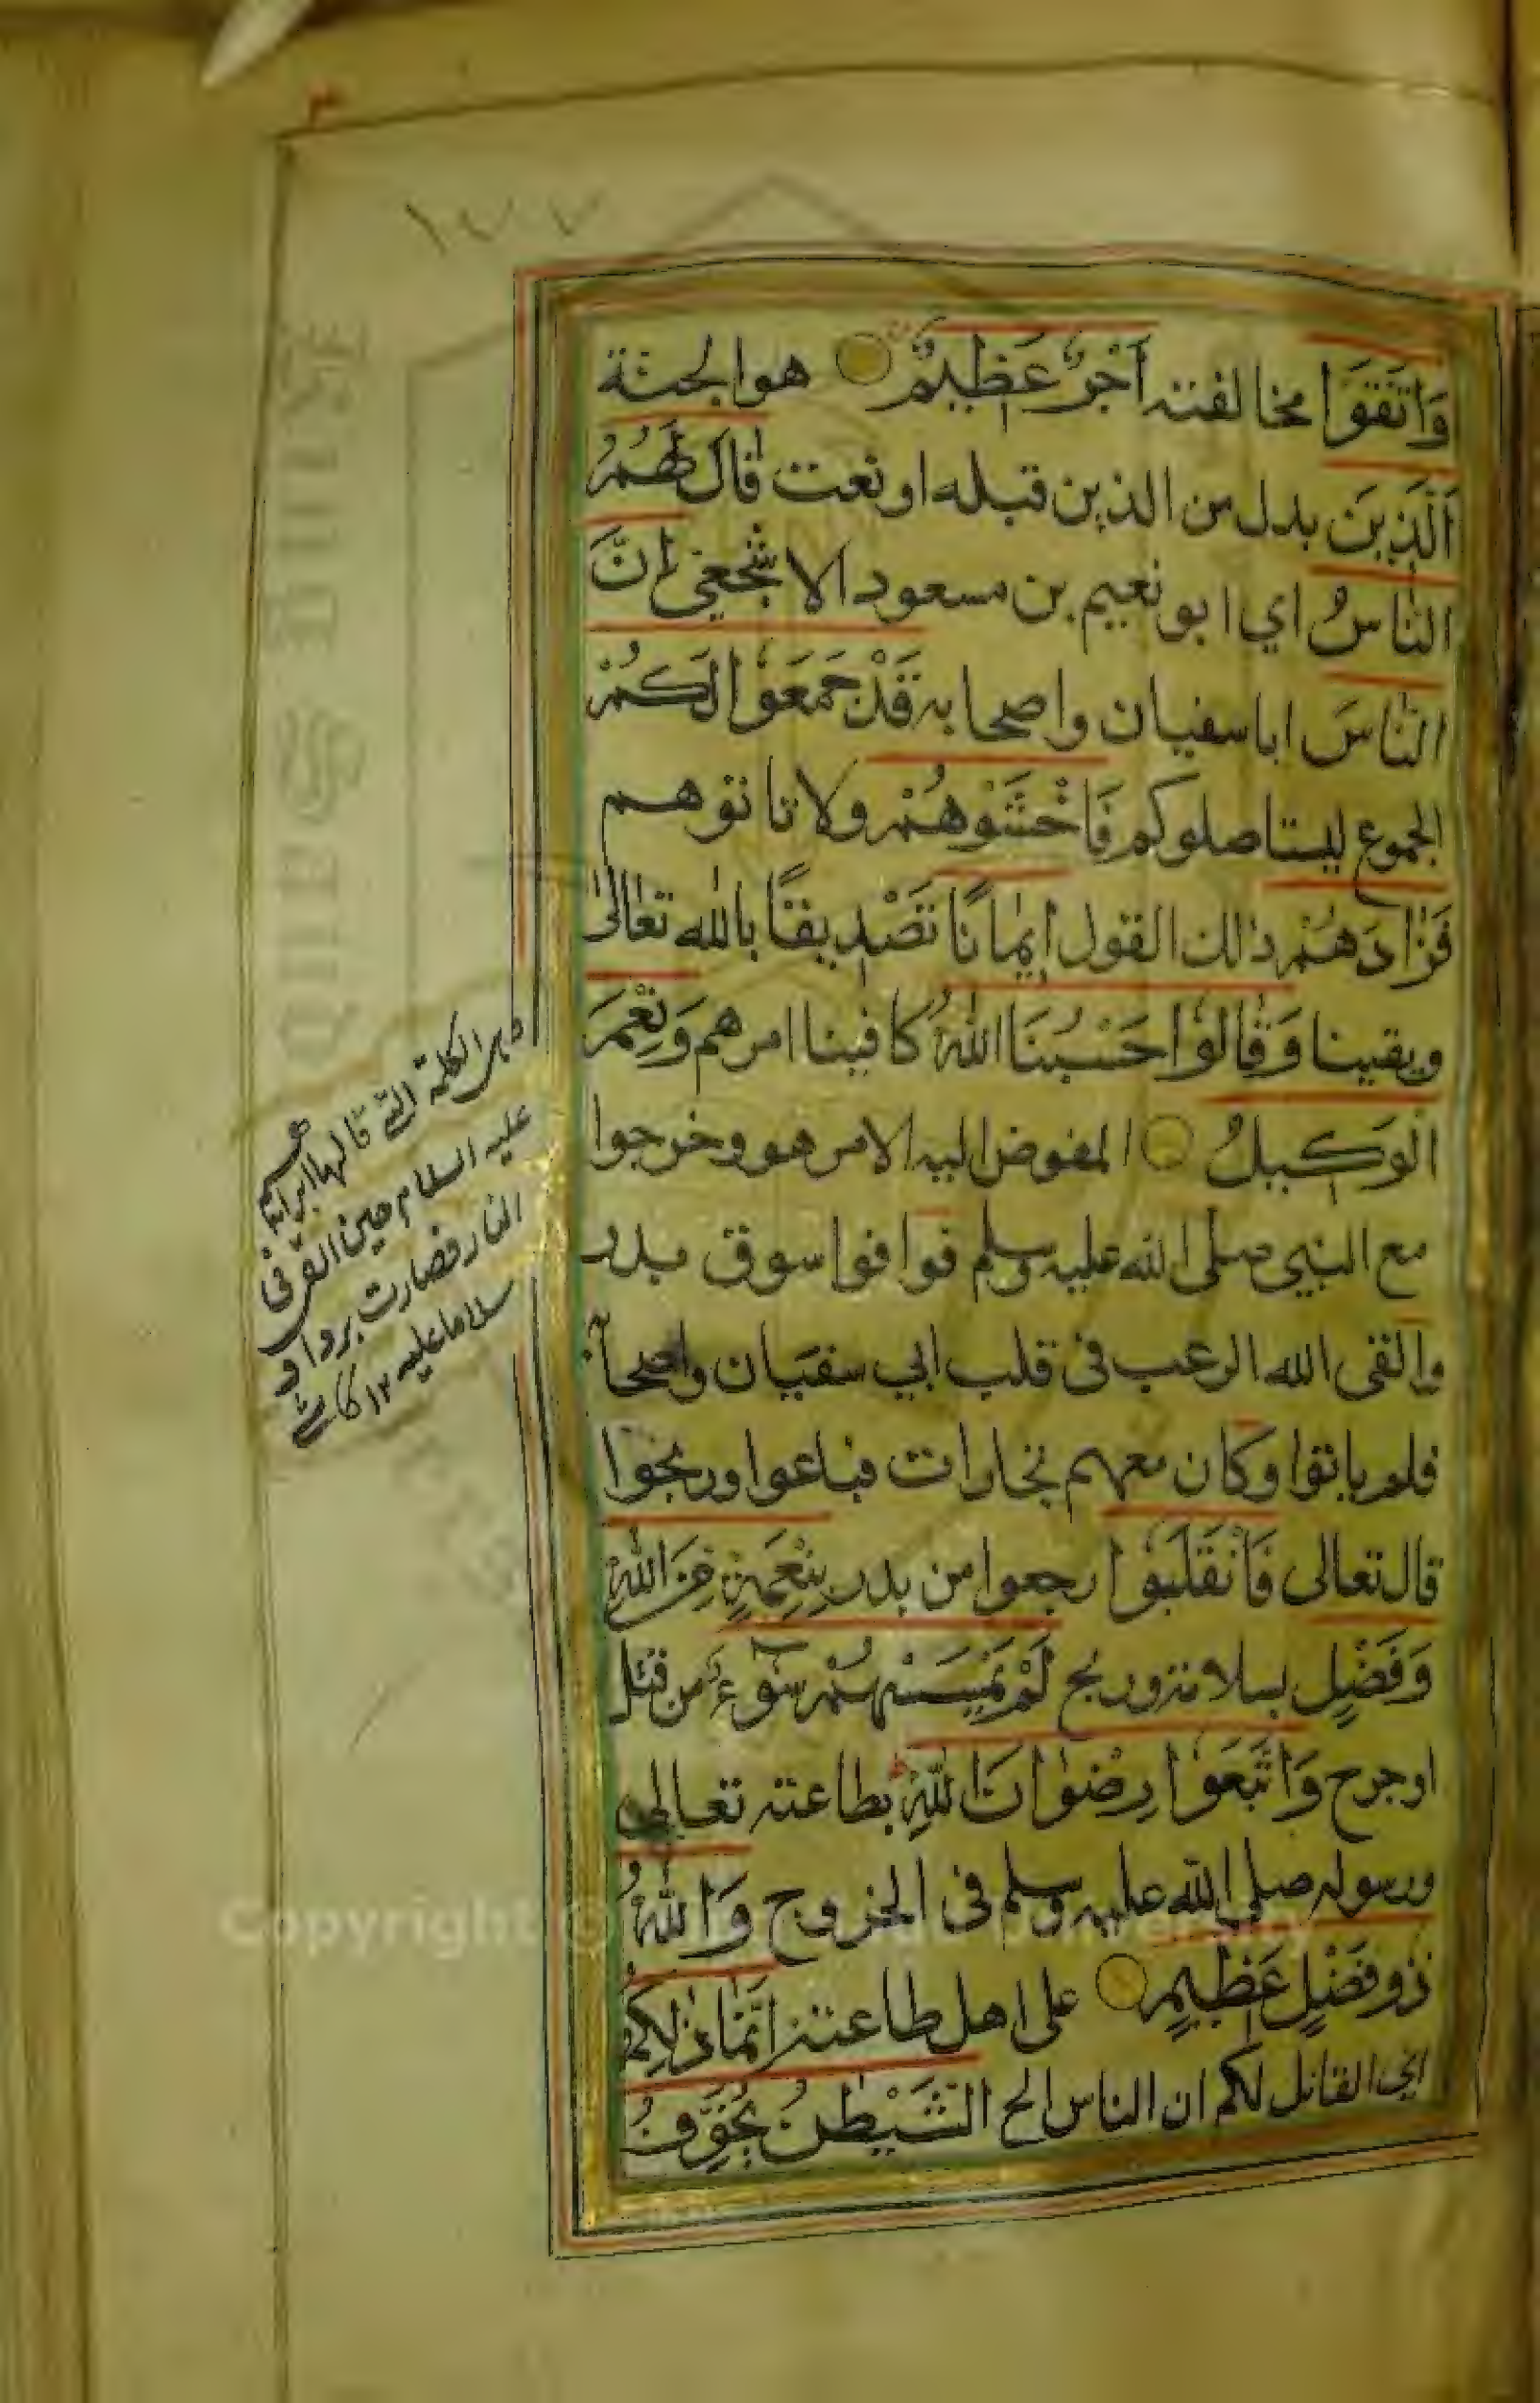 وَاتَّقَوْا مخالفته أَجْرٌ عَظِيمٌ هو الجنة
الَّذِينَ بدل من الذين قبله او نعت قَالَ لَهُمُ
النَّاسُ اي ابو نعيم بن مسعود الاشجعي إِنَّ
النَّاسَ ابا سفيان واصحابه قَدْ جَمَعُوا لَكُمْ
الجموع ليستاصلوكم فَاخْشَوْهُمْ ولا تاتوهم
فَزَادَهُمْ ذلك القول إِيمَانًا تَصْدِيقًا بالله تعالى
ويقينا وَقَالُوا حَسْبُنَا اللَّهُ كافينا امرهم وَنِعْمَ
الْوَكِيلُ المفوض اليه الامر هو وخرجوا
مع النبي صلى الله عليه وسلم فوافوا سوق بدر
والقى الله الرعب فى قلب ابي سفيان واصحابه
فلم ياتوا وكان معهم تجارات فباعوا وربحوا
قال تعالى فَانْقَلَبُوا رجعوا من بدر بِنِعْمَةٍ مِنَ اللَّهِ
وَفَضْلٍ بسلامة وربح لَمْ يَمْسَسْهُمْ سُوءٌ من قتل
او جرح وَاتَّبَعُوا رِضْوَانَ اللَّهِ بطاعته تعالى
ورسوله صلى الله عليه وسلم فى الخروج وَاللَّهُ
ذُو فَضْلٍ عَظِيمٍ على اهل طاعته إِنَّمَا ذَلِكُمُ
اي القائل لكم ان الناس الخ الشَّيْطَنُ يُخَوِّفُ
الكلمة التى قالها ابراهيم
عليه السلام حين القى فى
النار فصارت بردا و
سلاما عليه ١٢
King Saud
Copyright © King Saud University